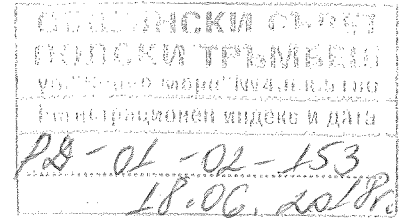 ОБЩИНСКИ СЪВЕТ
ПОЛСКИ ТРЪМБЕШ
ул. "Черно море" №4
Регистрационен индекс и дата
РД-01-02-153
18.06.2018г.